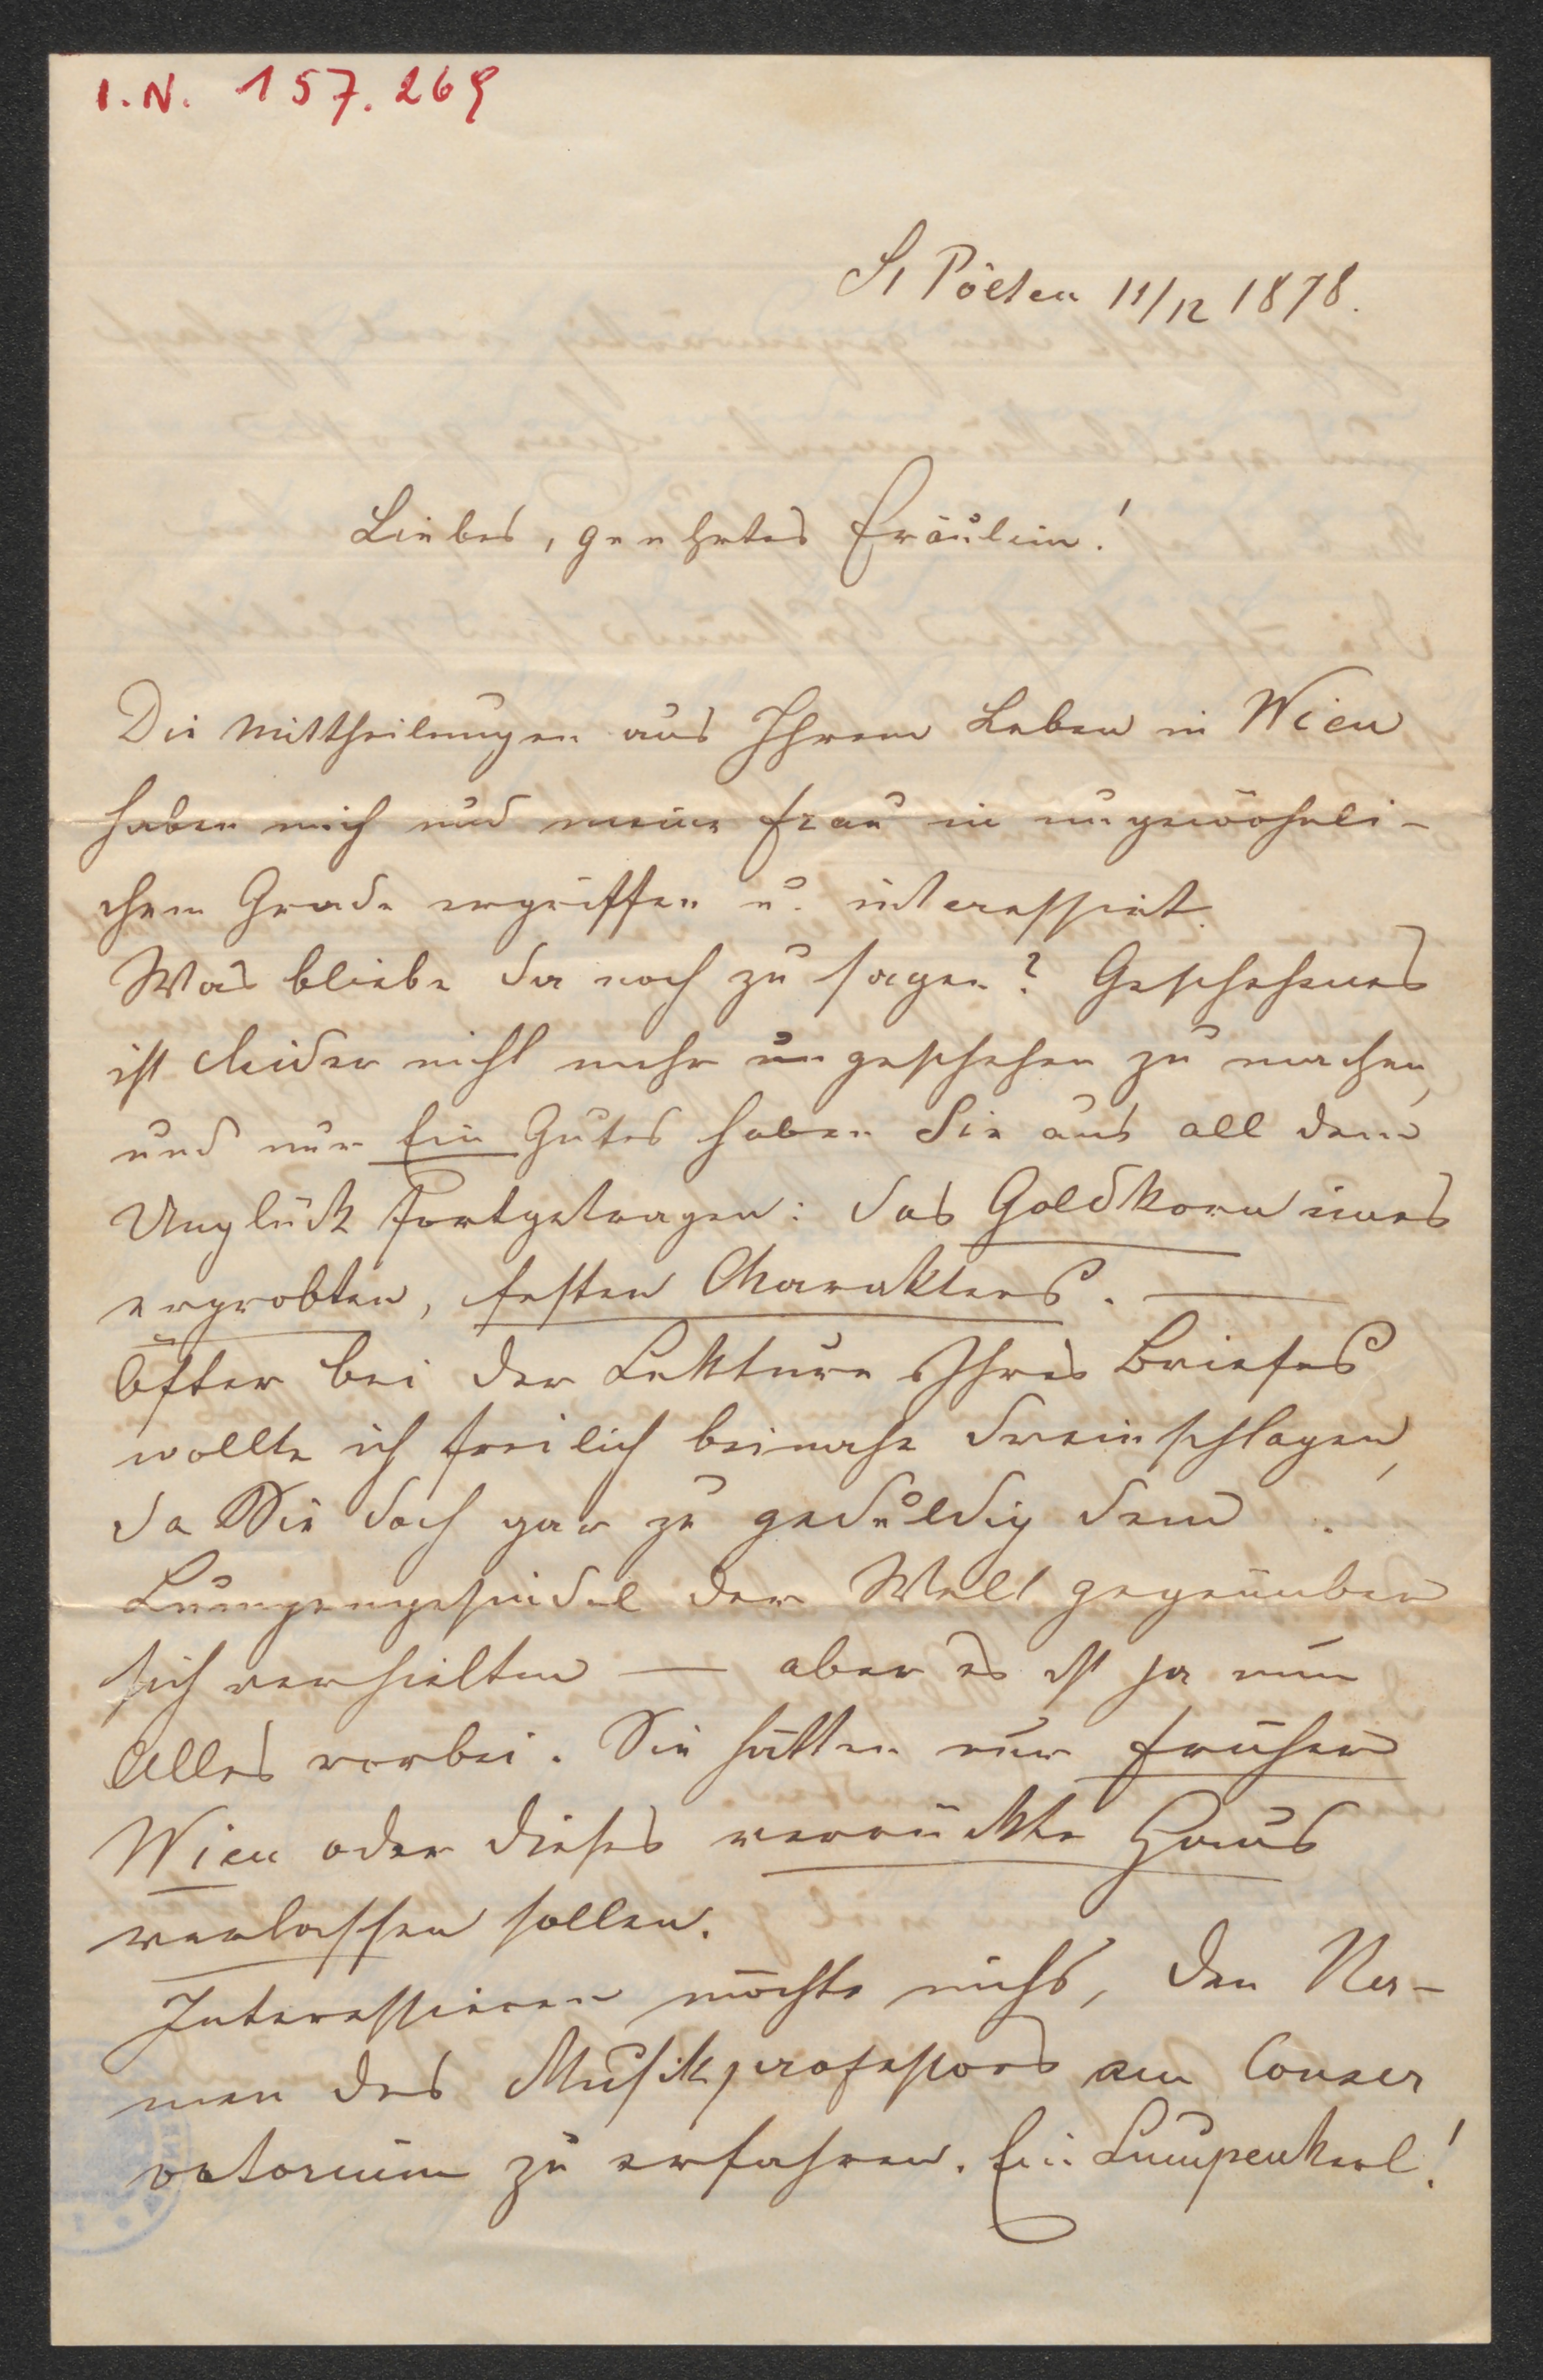 I.N. 157.269
St Pölten 11/12 1878.
Liebes, geehrtes Fräulein!
Die Mittheilungen aus Ihrem Leben in Wien
haben mich und meine Frau in ungewöhnli-
chem Grade ergriffen u. interessirt.
Was bliebe da noch zu sagen? Geschehenes
ist leider nicht mehr ungeschehen zu machen,
und nur Ein Gutes haben Sie aus all dem
Unglück fortgetragen: das Goldkorn eines
erprobten, festen Charakters. —
Öfter bei der Lektüre Ihres Briefes
wollte ich freilich beinahe dreinschlagen,
da Sie doch gar zu geduldig dem
Lumpengesindel der Welt gegenüber
sich verhielten — aber es ist ja nun
Alles vorbei. Sie hätten nur früher
Wien oder dieses verrückte Haus
verlassen sollen.
Interessieren möchte mich's, den Na-
men des Musikprofessors am Conser
vatorium zu erfahren. Ein Lumpenkerl!